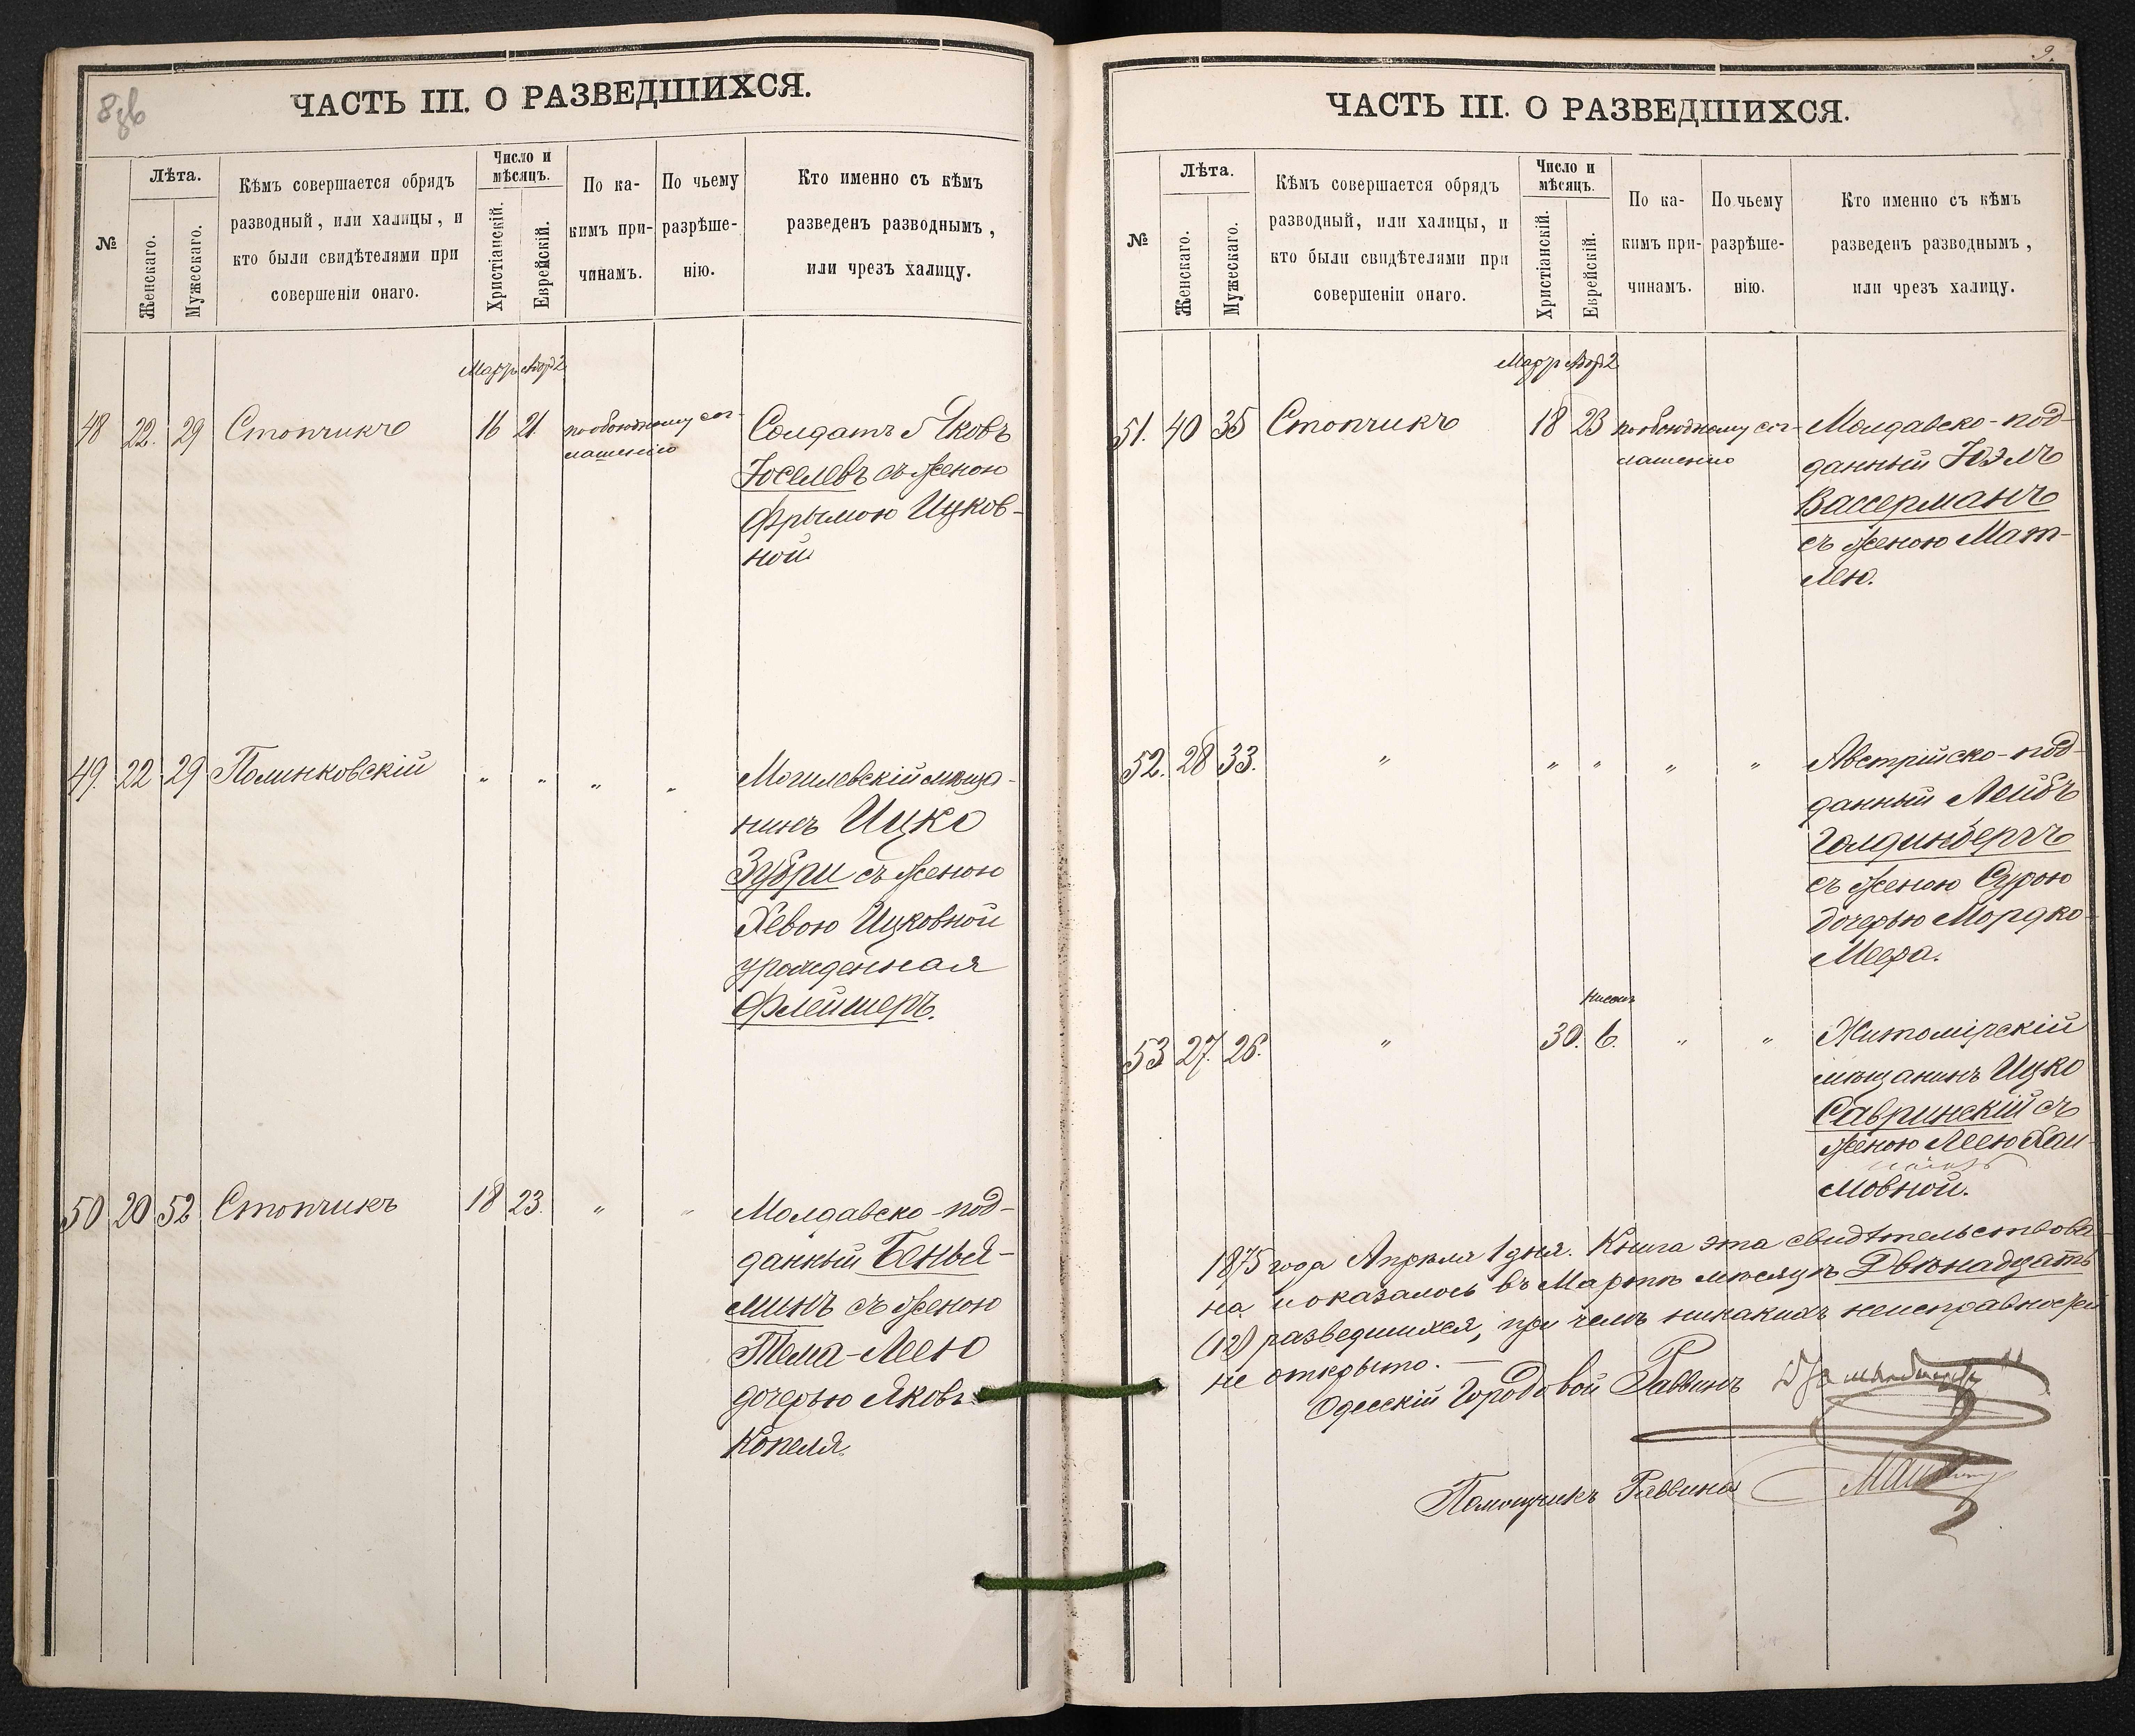 8зв
ЧАСТЬ III. О РАЗВЕДШИХСЯ.
№
Лѣта.
Женскаго.
Мужескаго.
Кѣмъ совершается обрядъ
разводный, или халицы, и
кто были свидѣтелями при
совершеніи онаго.
Число и
мѣсяцъ.
Христіанскій.
Еврейскій.
По ка-
кимъ при-
чинамъ.
По чьему
разрѣше-
нію.
Кто именно съ кѣмъ
разведенъ разводнымъ,
или чрезъ халицу.
Мартъ Адар 2
48 22. 29 Стопчикъ 16 21. по обоюдному сог- Солдатъ Яковъ
лашенію Іоселевъ съ женою
Фрымою Ицков-
ной.
49. 22 29 Полинковскій " " " " Могилевскій мѣща-
нинъ Ицко
Зубри съ женою
Хевою Ицковной
урожденная
Флейшеръ.
50 20 52 Стопчикъ 18 23. " " Молдавско-под-
данный Бенья-
минъ съ женою
Тема-Леею
дочерью Яковъ
Копеля.
9.
ЧАСТЬ III. О РАЗВЕДШИХСЯ.
№
Лѣта.
Женскаго.
Мужескаго.
Кѣмъ совершается обрядъ
разводный, или халицы, и
кто были свидѣтелями при
совершеніи онаго.
Число и
мѣсяцъ.
Христіанскій.
Еврейскій.
По ка-
кимъ при-
чинамъ.
По чьему
разрѣше-
нію.
Кто именно съ кѣмъ
разведенъ разводнымъ,
или чрезъ халицу.
Мартъ Адар 2
51. 40 35 Стопчикъ 18 23 по обоюдному сог- Молдавско-под-
лашенію данный Юэлъ
Вассерманъ
съ женою Мат-
лею.
52. 28 33. " " " " " Австрійско-под-
данный Лейбъ
Голдинбергъ
съ женою Сурою
дочерью Мордко-
Меера.
Нисонъ
53 27. 26. " 30. 6. " " Житомірскій
мѣщанинъ Ицко
Савринскій съ
женою Леею Хаи-
мовной.
1875 года Апрѣля 1 дня. Книга эта свидѣтельствова-
на и оказалось въ Мартѣ мѣсяцѣ Двѣнадцать
(12) разведшихся, при чемъ никакихъ неисправностей
не открыто. —
Одесскій Городовой Раввинъ
Помощникъ Раввина